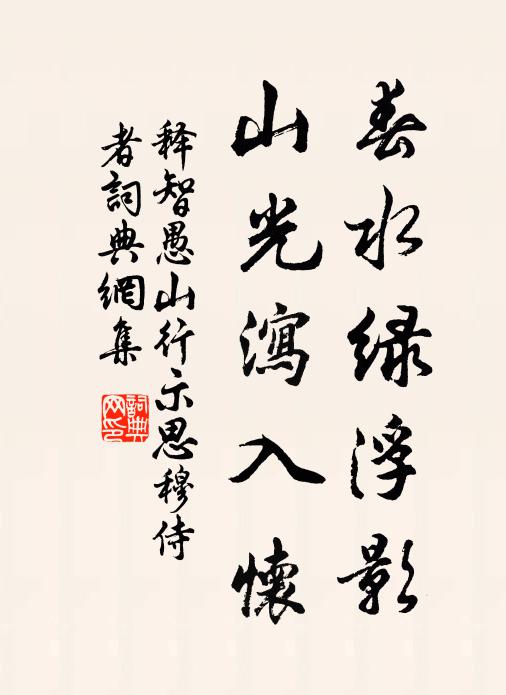 春水绿浮影
山光瀉入懷
释智愚山行示思穆侍
者詞典網集
詞典
网印